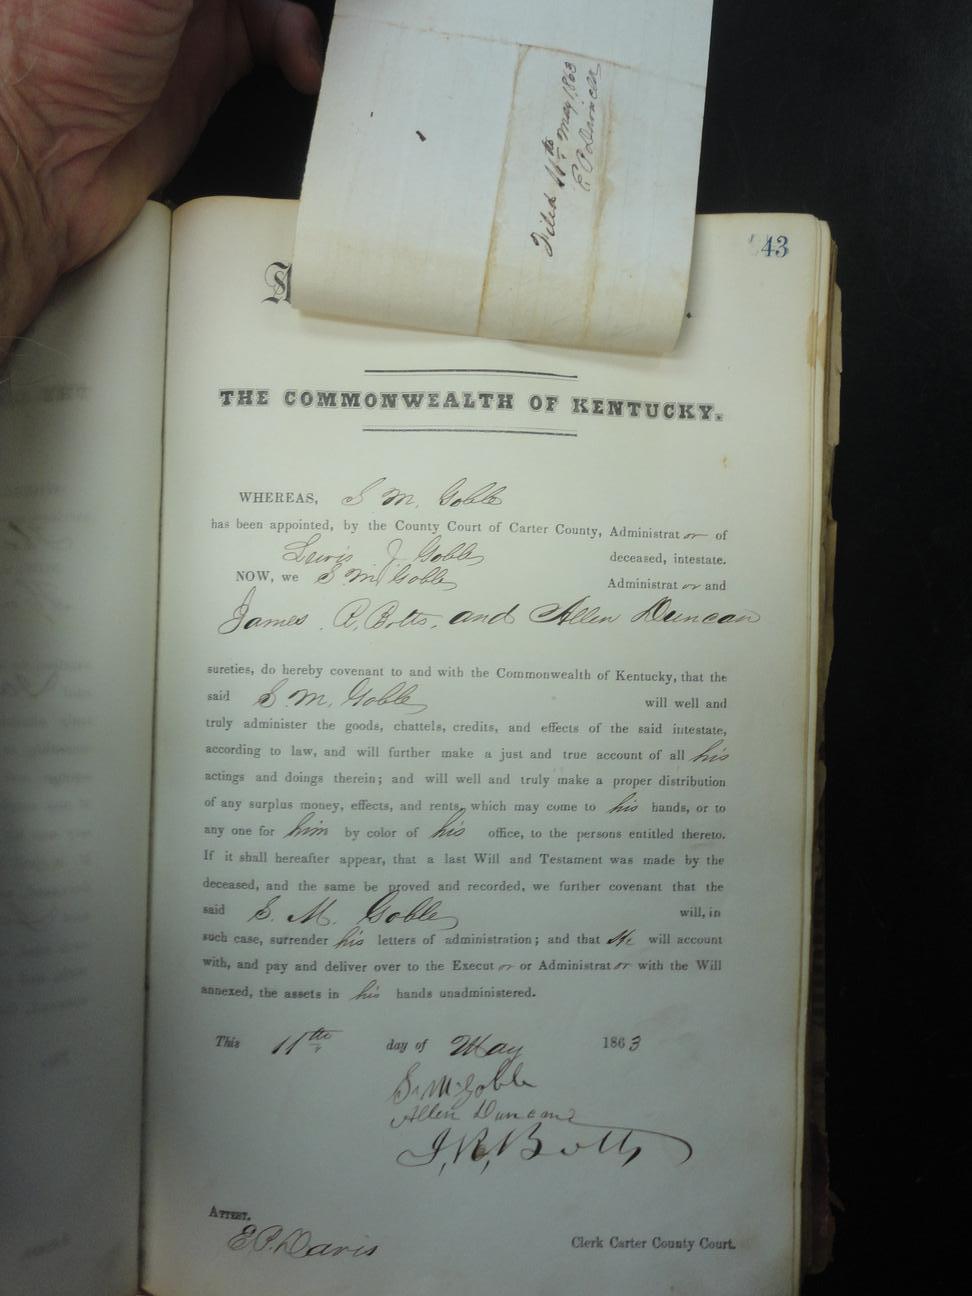 Filed 11th May 1863
E P Davis clk
43
THE COMMONWEALTH OF KENTUCKY.
WHEREAS, S. M. Goble
has been appointed, by the County Court of Carter County, Administrator of
Lewis J Goble deceased, intestate.
NOW, we S M Goble Administrator and
James R. Botts, and Allen Duncan
sureties, do hereby covenant to and with the Commonwealth of Kentucky, that the
said S. M. Goble will well and
truly administer the goods, chattels, credits, and effects of the said intestate,
according to law, and will further make a just and true account of all his
actings and doings therein; and will well and truly make a proper distribution
of any surplus money, effects, and rents, which may come to his hands, or to
any one for him by color of his office, to the persons entitled thereto.
If it shall hereafter appear, that a last Will and Testament was made by the
deceased, and the same be proved and recorded, we further covenant that the
said S. M. Goble will, in
such case, surrender his letters of administration; and that He will account
with, and pay and deliver over to the Executor or Administrator with the Will
annexed, the assets in his hands unadministered.
This 11th day of May 1863
S. M. Goble
Allen Duncan
J. R. Botts
ATTEST.
E. P. Davis Clerk Carter County Court.